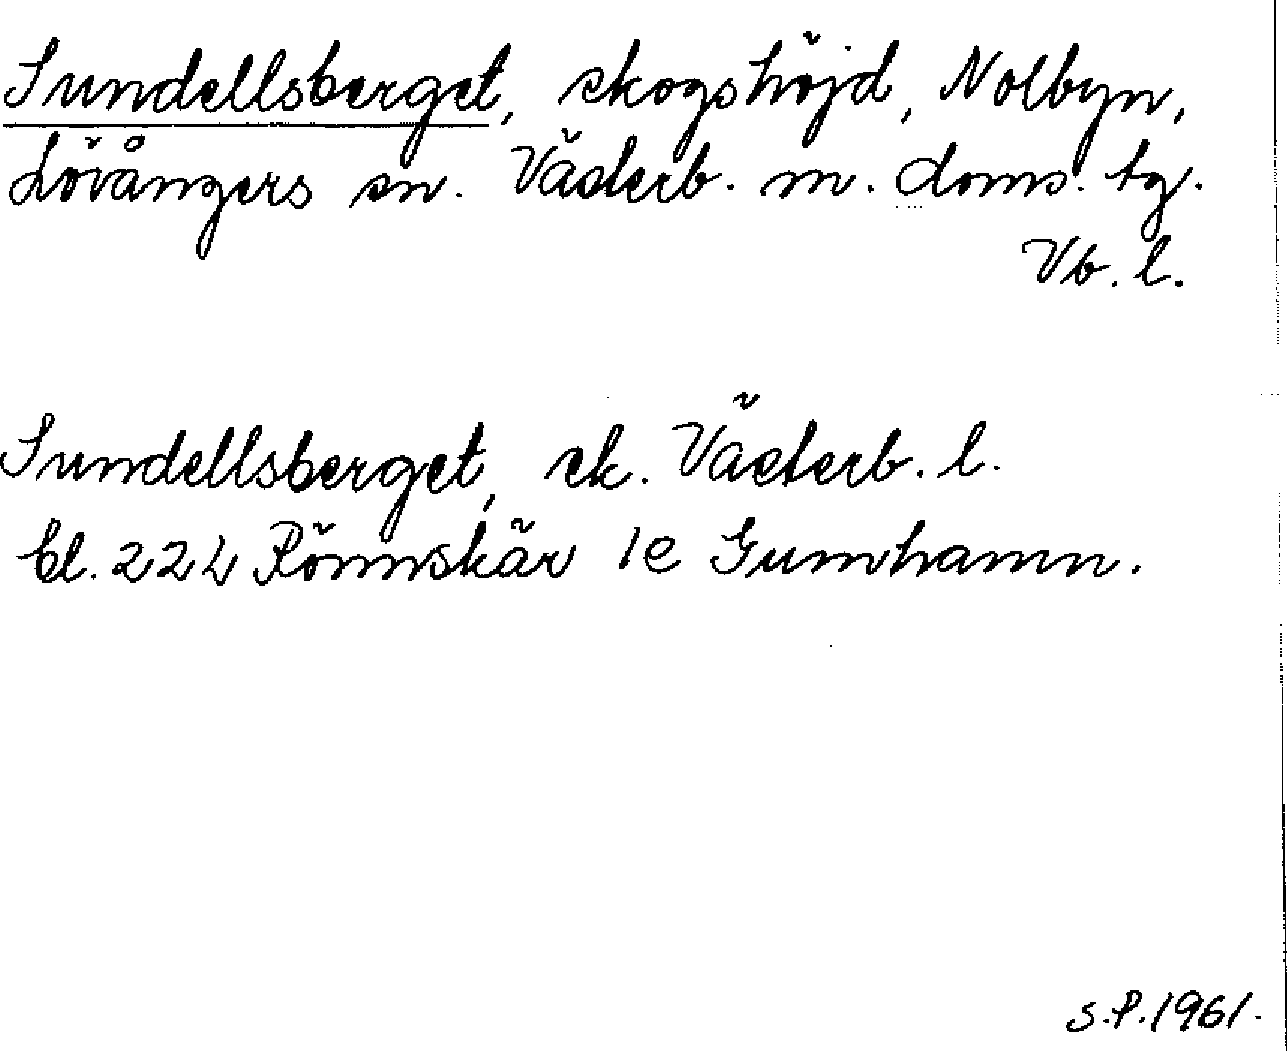 Sundellsberget, skogshöjd, Nolbyn,
Lövångers sn. Västerb. m. doms. tg.
Vb. l.
Sundellsberget, ek. Västerb. l.
bl. 22 L Rönnskär 1e Gumhamn.
S.P. 1961.